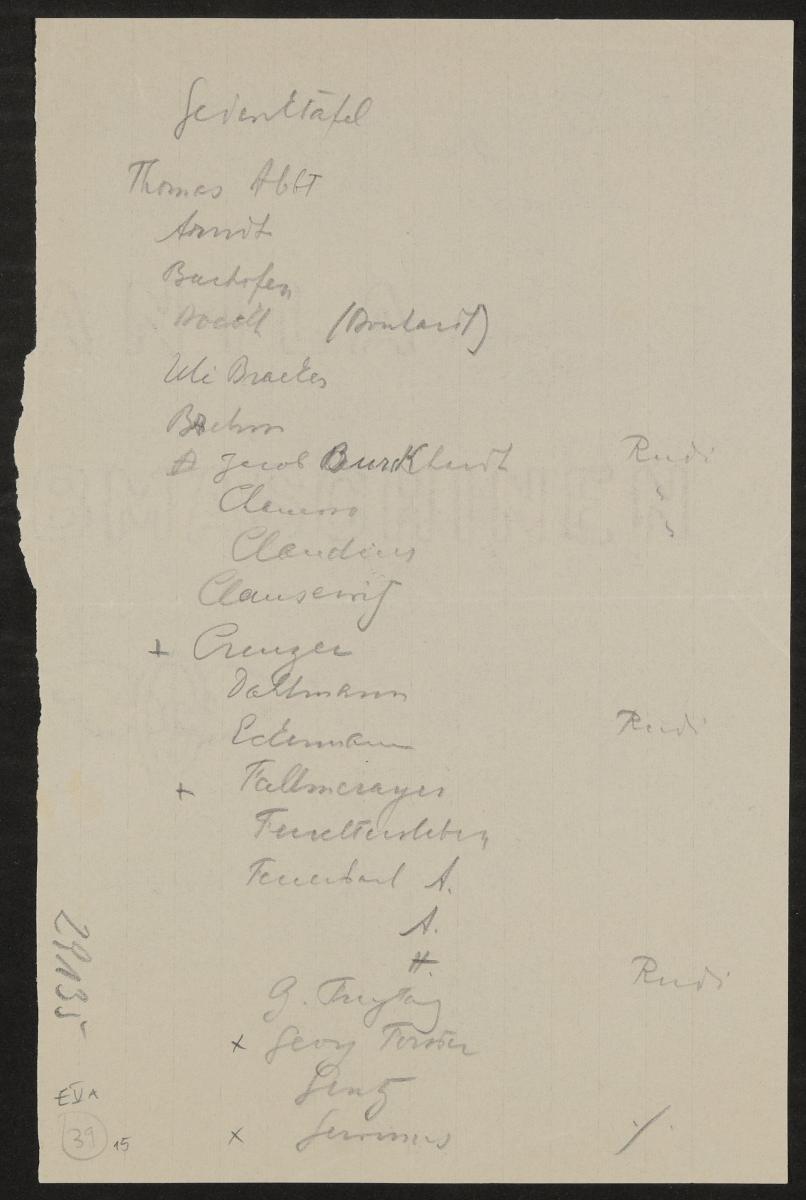 Gedenktafel
Thomas Abbt
Arndt
Bachofen
Boeckh
Uli Braeker
Brehm
Jacob Burckhardt Rudi
Claudius
Clausewitz
+ Creuzer
Dahlmann
Eckermann Rudi
+ Fallmerayer
Feuchtersleben
Feuerbach A.
A.
H.
G. Freytag Rudi
x Georg Forster
Gentz
x Gervinus ./.
29135
EVA
39 15